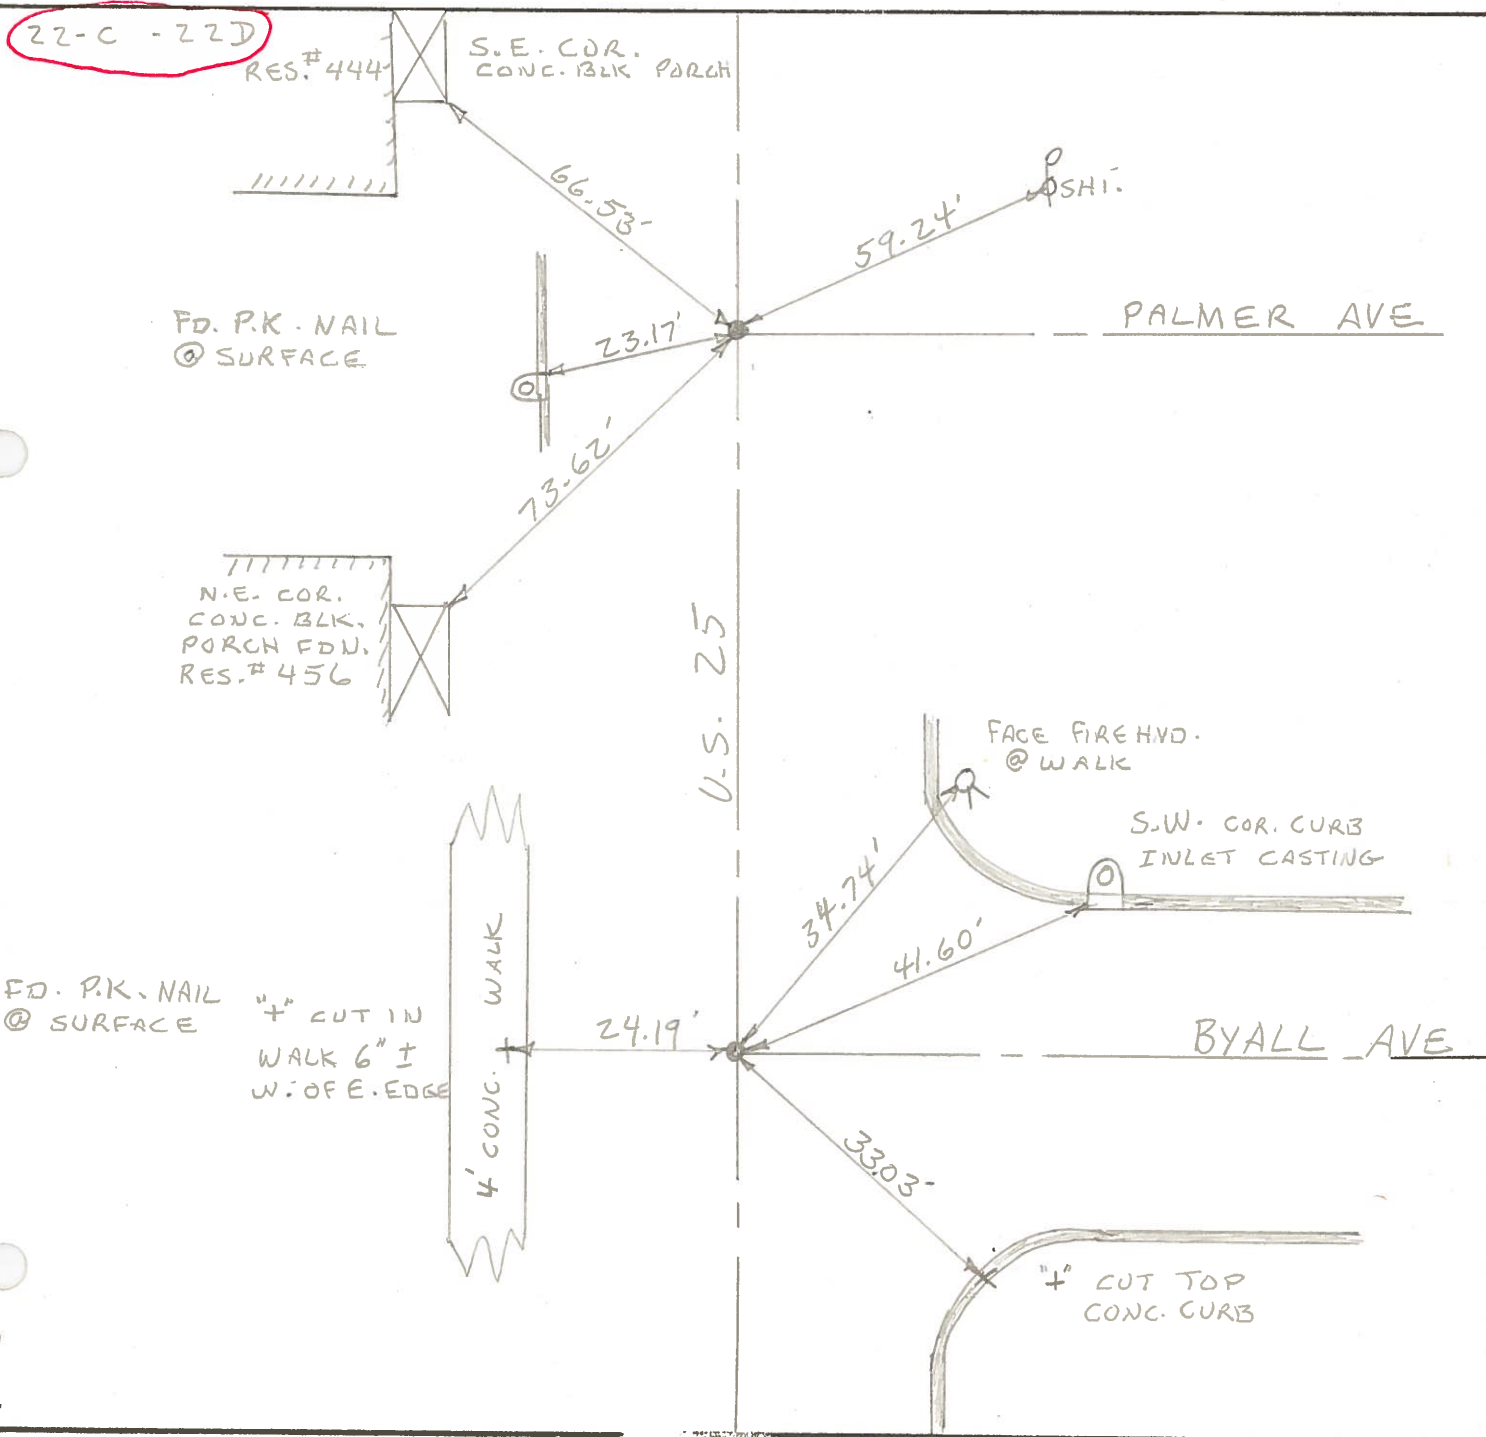 22-C - 22D
RES.# 444
S.E. COR.
CONC. BLK PORCH
66.53'
59.24'
SHI.
FD. P.K. NAIL
@ SURFACE
23.17'
PALMER AVE
73.62'
N.E. COR.
CONC. BLK.
PORCH FDN.
RES.# 456
U.S. 25
FACE FIRE HYD.
@ WALK
S.W. COR. CURB
INLET CASTING
34.74'
41.60'
4' CONC. WALK
FD. P.K. NAIL
@ SURFACE
"+" CUT IN
WALK 6" ±
W. OF E. EDGE
24.19'
BYALL AVE
33.03'
"+" CUT TOP
CONC. CURB